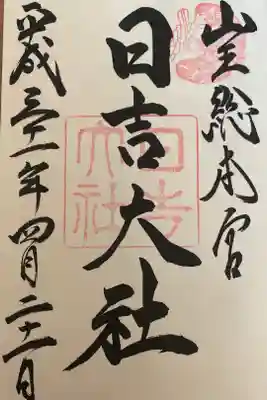 山王総本宮
日吉大社
平成三十一年四月二十一日
日吉大社